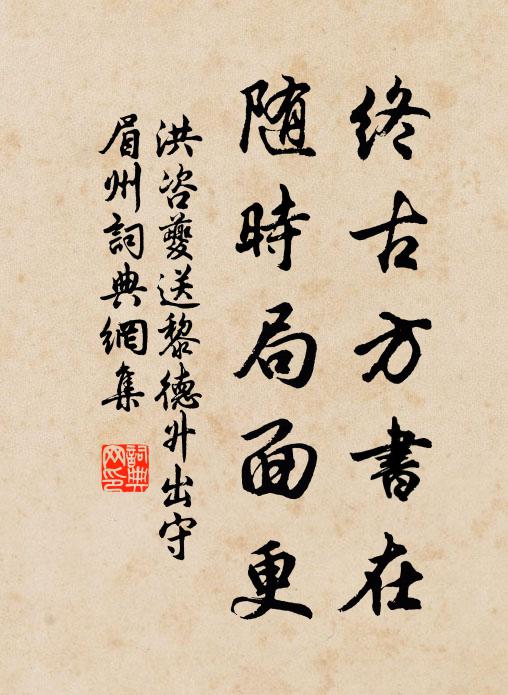 终古方書在
随時局面更
洪咨夔送黎德升出守
眉州詞典網集
詞典
网印